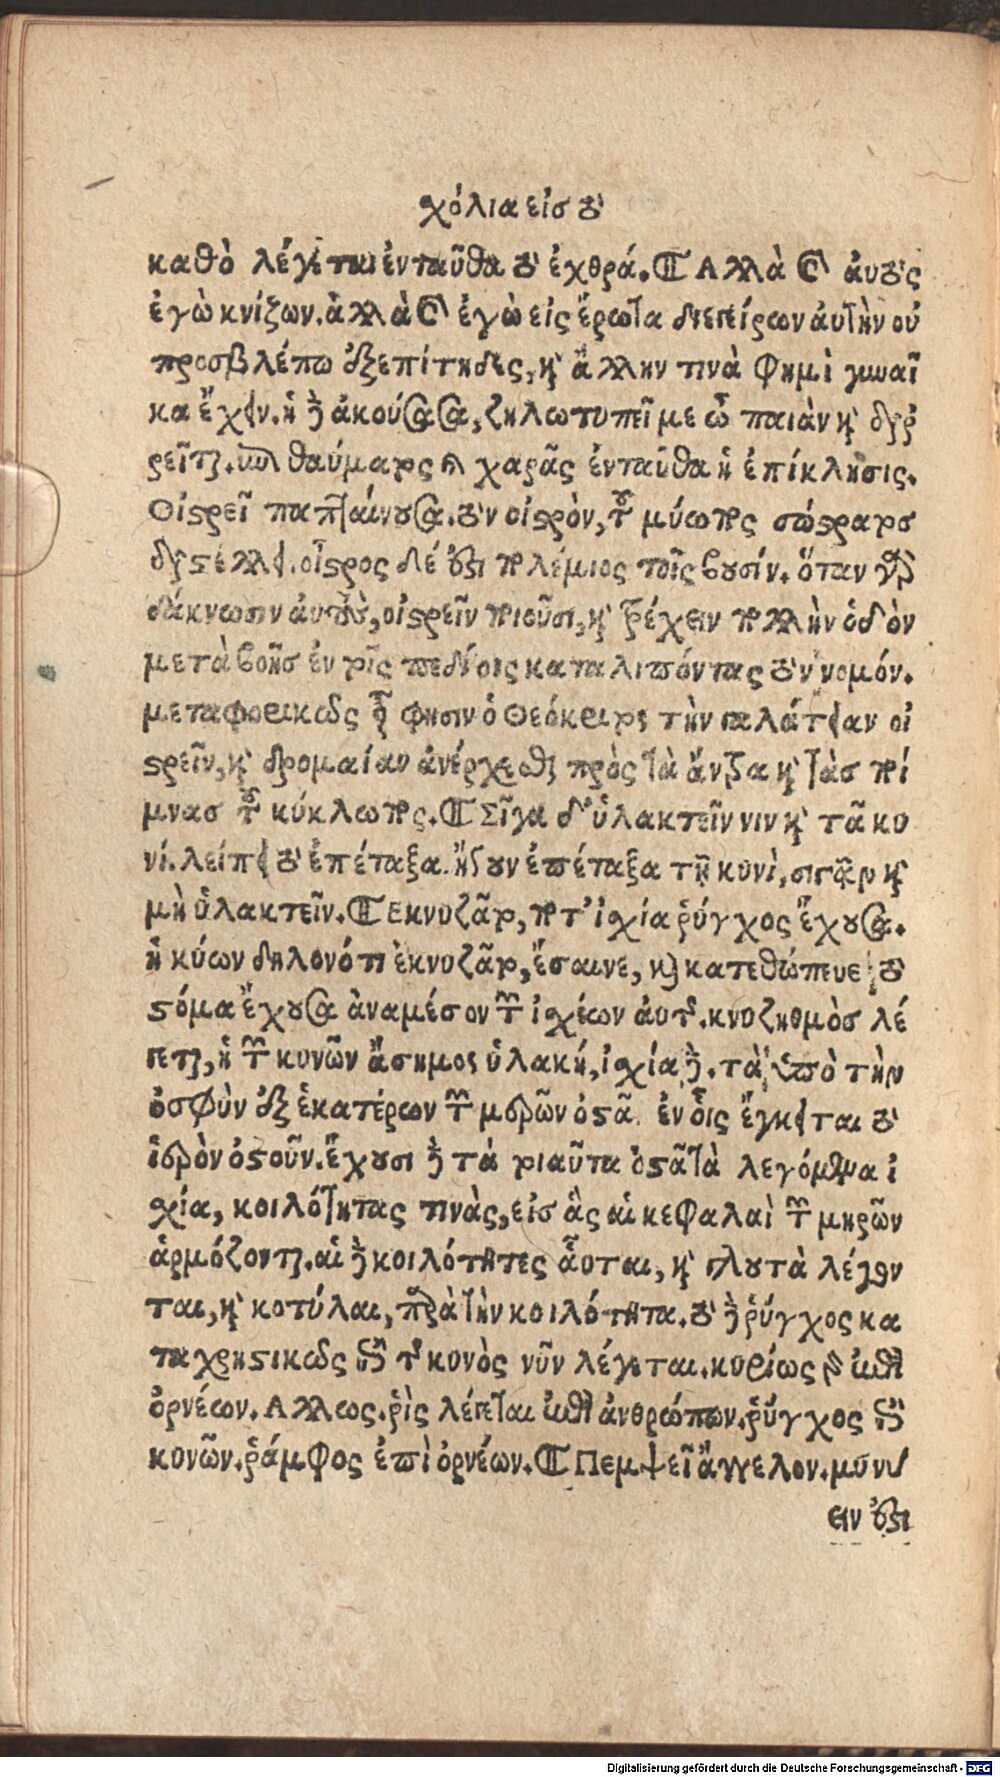 χόλια εἰσ τὸ
καθὸ λέγεται ἐνταῦθα τὸ ἐχθρά. Ἀλλὰ καὶ ἀυτὸς
ἐγὼ κνίζων. ἀλλὰ καὶ ἐγὼ εἰς ἔρωτα διεπείρων ἀυτὴν οὐ
προσβλέπω ἐξεπίτηδες, καὶ ἄλλην τινὰ φημὶ γυναῖ
κα ἔχειν. ἡ δὲ ἀκούσασα, ζηλωτυπεῖ με ὦ παιὰν καὶ
θαύματος καὶ χαρᾶς ἐνταῦθα ἡ ἐπίκλησις.
Οἰστρεῖ παπταίνουσα. τὸν οἶστρον, τοῦ μύωπος
οἶστρος δέ ἐστι πολέμιος τοῖς βουσίν. ὅταν γὰρ
δάκνωσιν ἀυτοὺς, οἰστρεῖν ποιοῦσι, καὶ τρέχειν πολλὴν ὁδὸν
μετὰ βοῆσ ἐν τοῖς πεδίοις καταλιπόντας τὸν νομόν.
μεταφορικῶς οὖν φησιν ὁ Θεόκριτος τὴν Γαλάτειαν οἰ
στρεῖν, καὶ δρομαίαν ἀνέρχεσθαι πρὸς τὰ ἄντρα καὶ τὰσ ποί
μνασ τοῦ κύκλωπος. Σῖγα δ' ὑλακτεῖν νιν καὶ τᾶ κυ
νί. λείπει τὸ ἐπέταξα. ἤγουν ἐπέταξα τῇ κυνὶ, σιγᾶν καὶ
μὴ ὑλακτεῖν. Εκνυζᾶτο, ποτ' ἰσχία ῥύγχος ἔχουσα.
ἡ κύων δηλονότι ἐκνυζᾶτο, ἔσαινε, καὶ κατεθώπευε τὸ
στόμα ἔχουσα ἀναμέσον τῶν ἰσχίων ἀυτοῦ. κνυζηθμὸσ λέ
γεται, ἡ τῶν κυνῶν ἄσημος ὑλακή, ἰσχία δὲ. τὰ ὑπὸ τὴν
ὀσφὺν ἐξ ἑκατέρων τῶν μερῶν ὀστᾶ. ἐν οἷς ἔγκειται τὸ
ἱερὸν ὀστοῦν. ἔχουσι δὲ τὰ τοιαῦτα ὀστᾶ τὰ λεγόμενα ἰ
σχία, κοιλότητας τινὰς, εἰσ ἃς αἱ κεφαλαὶ τῶν μηρῶν
ἁρμόζονται. αἱ δὲ κοιλότητες αὗται, καὶ γλουτὰ λέγον
ται, καὶ κοτύλαι, παρὰ τὴν κοιλότητα. τὸ δὲ ῥύγχος κα
ταχρηστικῶς ἐπὶ τοῦ κυνὸς νῦν λέγεται. κυρίως γὰρ ἐπὶ
ὀρνέων. Αλλως. ῥὶς λέγεται ἐπὶ ἀνθρώπων. ῥύγχος ἐπὶ
κυνῶν. ῥάμφος ἐπὶ ὀρνέων. Πεμψεῖ ἄγγελον. μῦνύ
ειν ἐστι
Digitalisierung gefördert durch die Deutsche Forschungsgemeinschaft - DFG